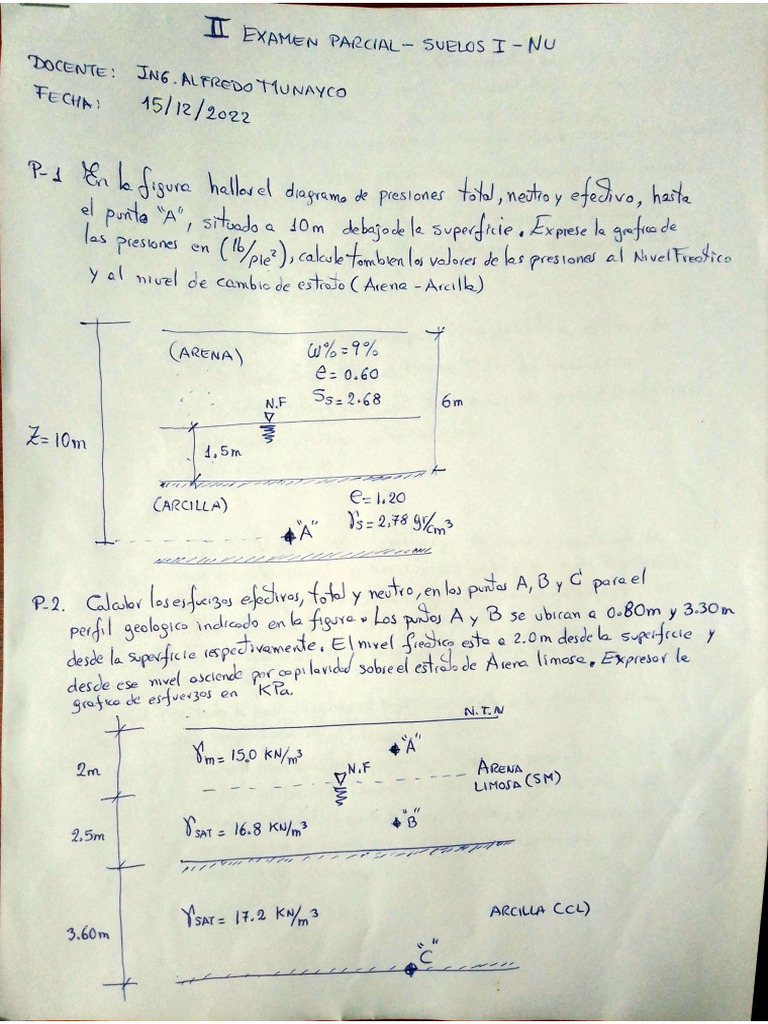 II EXAMEN PARCIAL - SUELOS I - NU
DOCENTE: ING. ALFREDO MUNAYCO
FECHA: 15/12/2022
P-1 En la figura hallar el diagrama de presiones total, neutro y efectivo, hasta
el punto "A", situado a 10m debajo de la superficie. Exprese la grafica de
las presiones en (lb/pie²), calcule tambien los valores de las presiones al Nivel Freático
y al nivel de cambio de estrato (Arena - Arcilla)
(ARENA)
W% = 9%
e = 0.60
Ss = 2.68
N.F
6m
Z = 10m
1.5m
(ARCILLA)
e = 1.20
γs = 2,78 gr/cm³
"A"
P-2. Calcular los esfuerzos efectivos, total y neutro, en los puntos A, B y C para el
perfil geologico indicado en la figura. Los puntos A y B se ubican a 0.80m y 3.30m
desde la superficie respectivamente. El nivel freatico esta a 2.0m desde la superficie y
desde ese nivel asciende por capilaridad sobre el estrato de Arena limosa. Expresar la
grafica de esfuerzos en KPa.
N.T.N
2m
γm = 15.0 KN/m³
"A"
N.F
ARENA
LIMOSA (SM)
2.5m
γSAT = 16.8 KN/m³
"B"
3.60m
γSAT = 17.2 KN/m³
ARCILLA (CL)
"C"